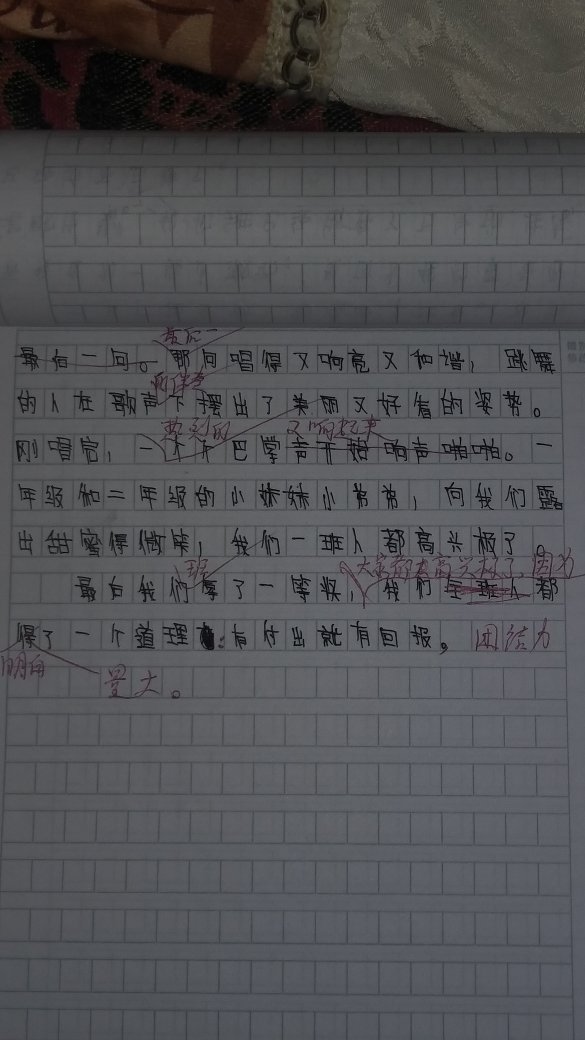 最后一
最后一句。那句唱得又响亮又和谐，跳舞
的人在歌声下摆出了美丽又好看的姿势。
热烈的 又响起来
刚唱完，一个个巴掌声开始啪声啪啪。一
年级和二年级的小妹妹小弟弟，向我们露
出甜蜜得微笑，我们一班人都高兴极了。
班 大家都高兴极了，因为
最后我们得了一等奖，我们全班人都
得了一个道理：有付出就有回报。团结力
明白 量大。